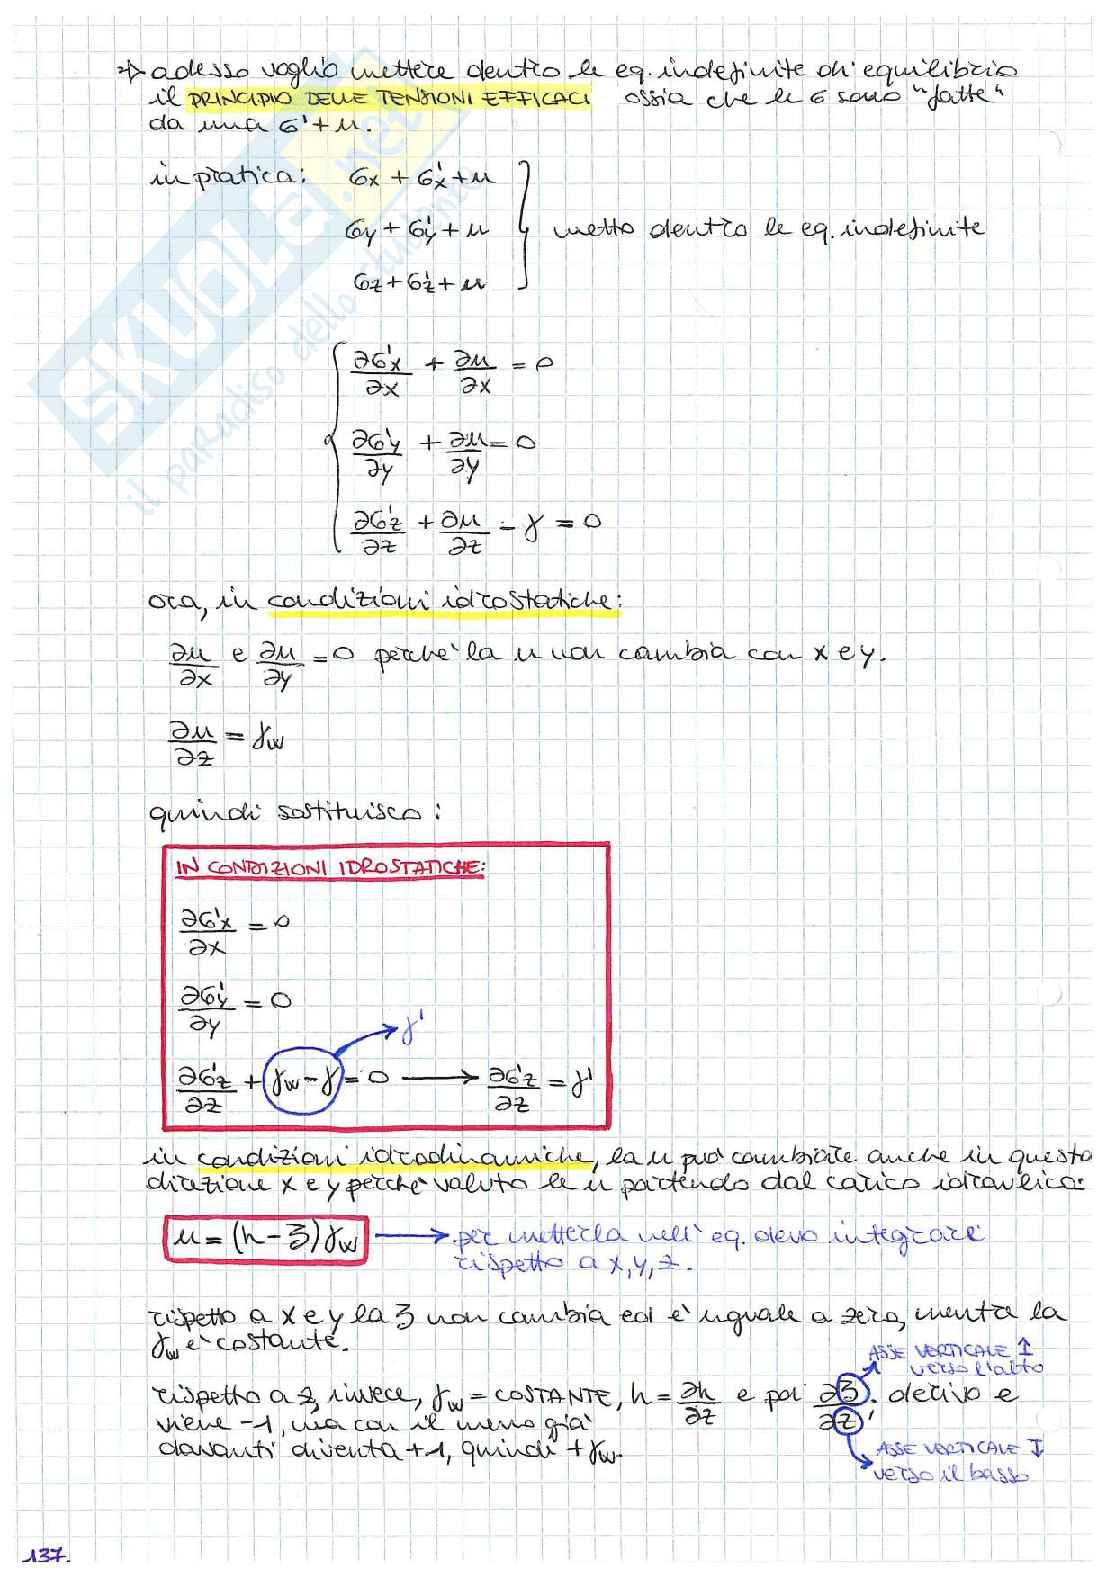 ⇒ adesso voglio mettere dentro le eq. indefinite di equilibrio
il PRINCIPIO DELLE TENSIONI EFFICACI ossia che le σ sono "fatte"
da una σ' + u.
in pratica: σx + σ'x + u
σy + σ'y + u } metto dentro le eq. indefinite
σz + σ'z + u
∂σ'x/∂x + ∂u/∂x = 0
∂σ'y/∂y + ∂u/∂y = 0
∂σ'z/∂z + ∂u/∂z - γ = 0
ora, in condizioni idrostatiche:
∂u/∂x e ∂u/∂y = 0 perché la u non cambia con x e y.
∂u/∂z = γw
quindi sostituisco:
IN CONDIZIONI IDROSTATICHE:
∂σ'x/∂x = 0
∂σ'y/∂y = 0
γ'
∂σ'z/∂z + γw - γ = 0 → ∂σ'z/∂z = γ'
in condizioni idrodinamiche, la u può cambiare anche in questa
direzione x e y perché valuto le u partendo dal carico idraulico:
u = (h - ʒ) γw → per metterla nell'eq. devo integrare
rispetto a x, y, z.
rispetto a x e y la ʒ non cambia ed è uguale a zero, mentre la
γw è costante.
ASSE VERTICALE ↑
verso l'alto
rispetto a z, invece, γw = COSTANTE, h = ∂h/∂z e poi ∂ʒ/∂z, derivo e
viene -1, ma con il meno già
davanti diventa +1, quindi + γw.
ASSE VERTICALE ↓
verso il basso
137.
SKUOLA.net
il paradiso dello studente